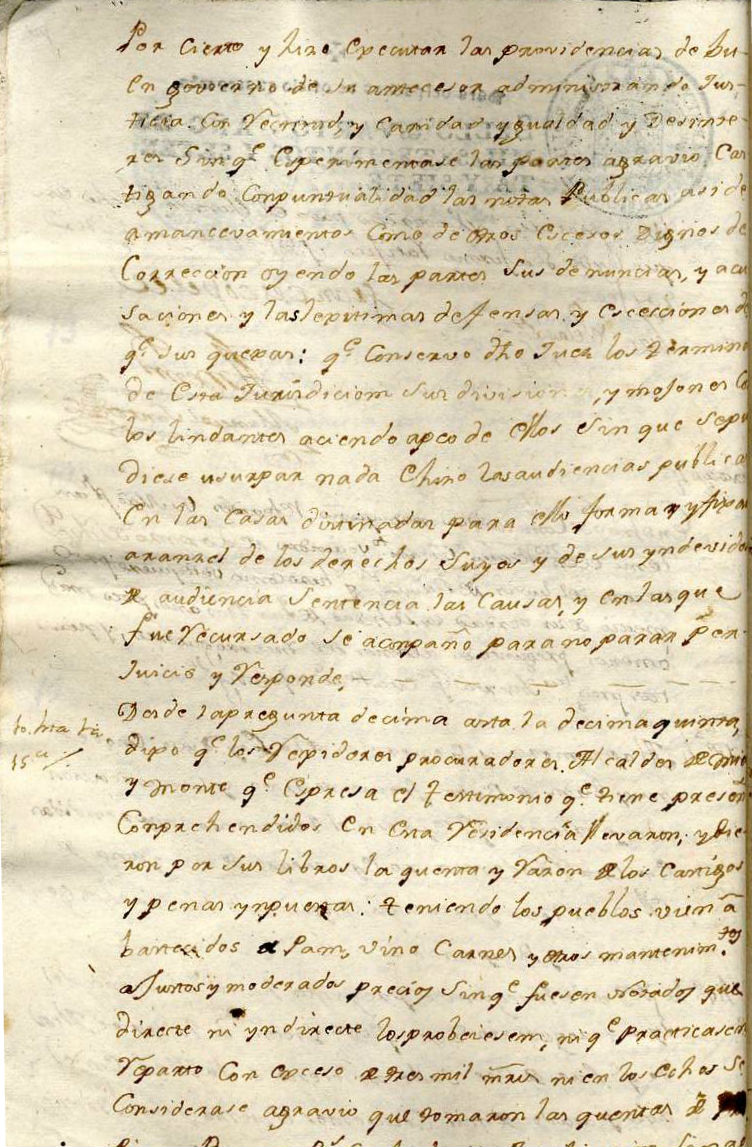 Por cierto y hiro Executar las providencias de bu-
en govaerno de su antecesor administrando Jus-
ticia Con Rectitud, y Caridad ygualdad y Desinte-
res Sin q.e Esperimentase las partes agravio Cas
tigando Conpuntualidad las notas Publicas asi de
amancevamientos Como de otros Escesos Dignos de
Correccion oyendo las partes Sus denuncias, y acu
saciones y laslepitimas defensas y Escecciones de
q.e sus quepas: q.e Conservo dho Juez los termino
de Esta Jurisdiciom Sus divisiones, y mojones Co
los lindantes aciendo apeo de ellos Sin que Sepu
diese usurpar nada Ehiro lasaudiencias publica
En las Casas distinadas para ello formar y fixar
aranzel de los derechos Suyos y de sus yndevido
de audiencia Sentencia las Causas, y en lasque
fue recursado se aconpaño parano parar per-
Juicio y Responde,
to. hta la
15a
Desde lapregunta decima asta la decima quinta,
dixo q.e los Rexidores procuradores. Alcaldes de
y monte q.e Espresa el testimonio q.e tiene presen
Conprehendidos En Esta Residencia llevaron, y die-
ron por sus libros la quenta y raron de los Castigos
y penas ynpuestas: teniendo los pueblos vien a
bastecidos de Pam, vino Carnes y otros mantenim.tos
aJustos y moderados precios Sin q.e fuesen notados que
directe ni yndirecte losprobeiesem, ni q.e Practicasen
reparto Con exceso de tres mil mrs ni en los Echos Se
Considerase agravio que tomaron las quentas de